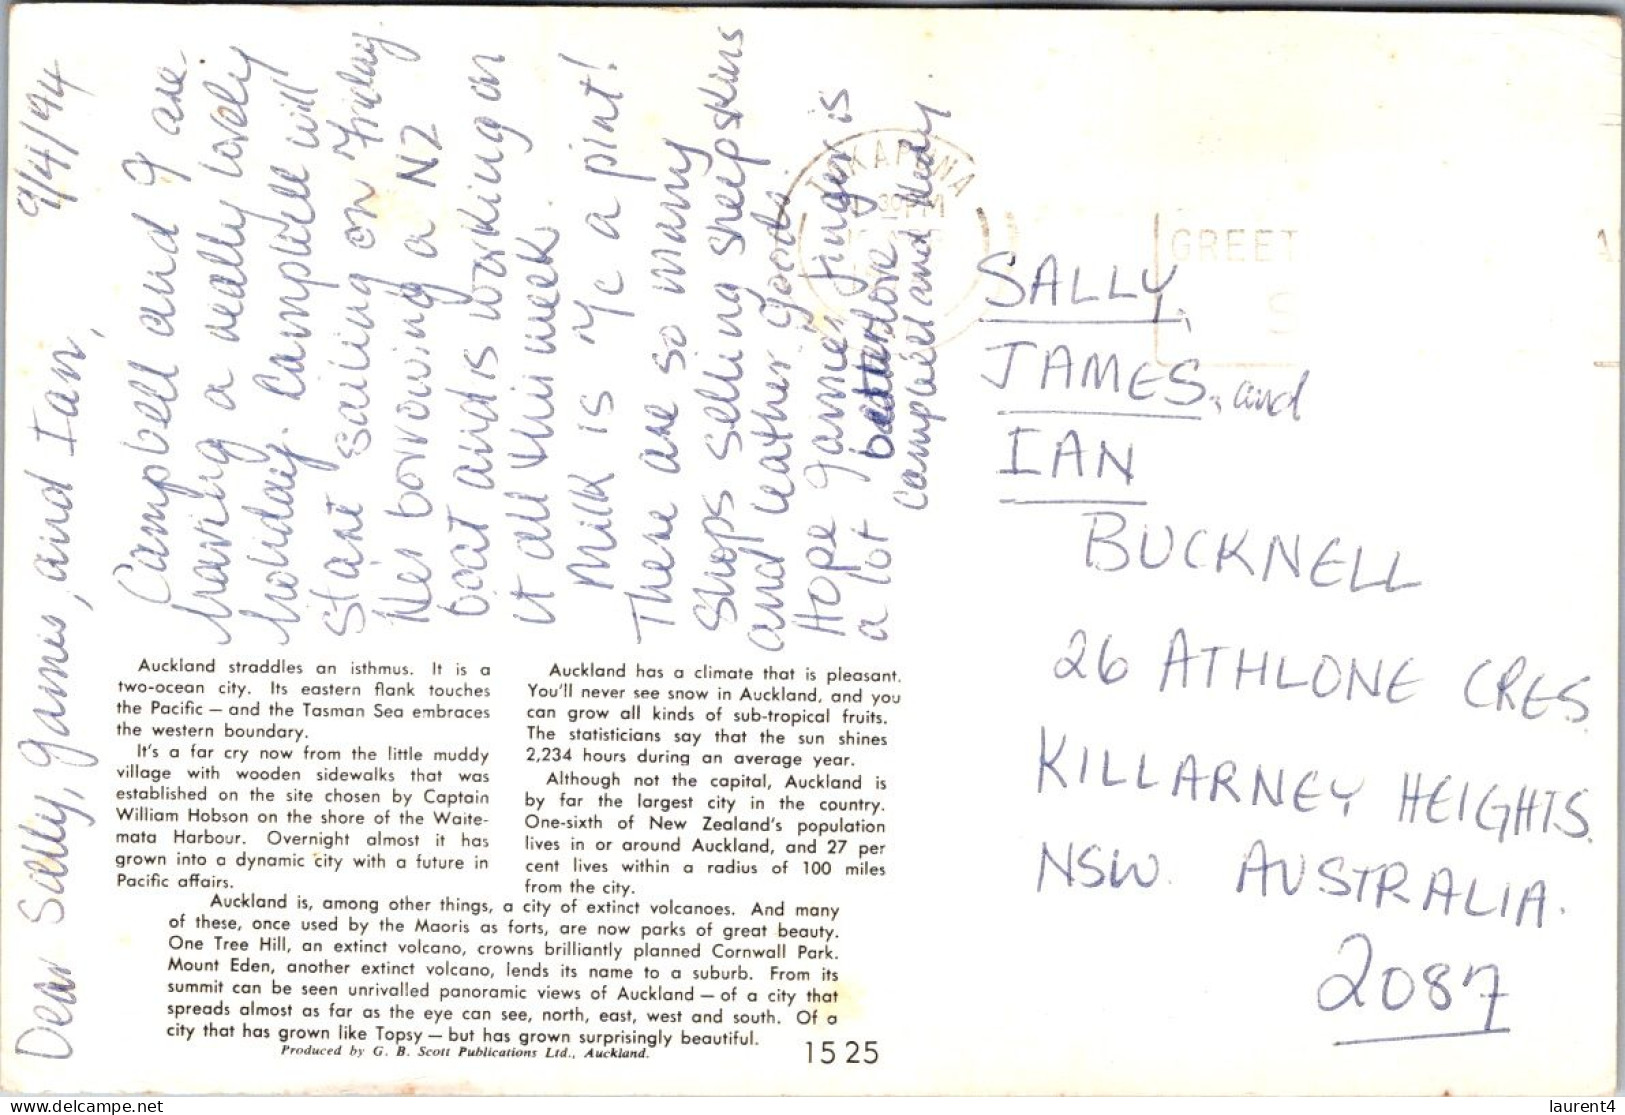 9/4/94
Dear Sally, James, and Ian,
Campbell and I are
having a really lovely
holiday. Campbell will
start sailing on Friday
He's borrowing a NZ
boat and is working on
it all this week.
Milk is 4c a pint!
There are so many
shops selling sheepskins
and leather goods.
Hope James' finger is
a lot better love
Campbell and
TAKAPUNA
30 PM
GREET
SALLY,
JAMES, and
IAN
BUCKNELL
26 ATHLONE CRES
KILLARNEY HEIGHTS.
NSW. AUSTRALIA.
2087
Auckland straddles an isthmus. It is a
two-ocean city. Its eastern flank touches
the Pacific — and the Tasman Sea embraces
the western boundary.
It's a far cry now from the little muddy
village with wooden sidewalks that was
established on the site chosen by Captain
William Hobson on the shore of the Waite-
mata Harbour. Overnight almost it has
grown into a dynamic city with a future in
Pacific affairs.
Auckland has a climate that is pleasant.
You'll never see snow in Auckland, and you
can grow all kinds of sub-tropical fruits.
The statisticians say that the sun shines
2,234 hours during an average year.
Although not the capital, Auckland is
by far the largest city in the country.
One-sixth of New Zealand's population
lives in or around Auckland, and 27 per
cent lives within a radius of 100 miles
from the city.
Auckland is, among other things, a city of extinct volcanoes. And many
of these, once used by the Maoris as forts, are now parks of great beauty.
One Tree Hill, an extinct volcano, crowns brilliantly planned Cornwall Park.
Mount Eden, another extinct volcano, lends its name to a suburb. From its
summit can be seen unrivalled panoramic views of Auckland — of a city that
spreads almost as far as the eye can see, north, east, west and south. Of a
city that has grown like Topsy — but has grown surprisingly beautiful.
Produced by G. B. Scott Publications Ltd., Auckland.
1525
delcampe.net
laurent4